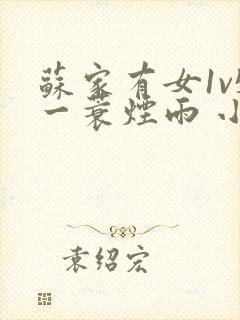 蘇家有女1v
一蓑煙雨 小
袁绍宏